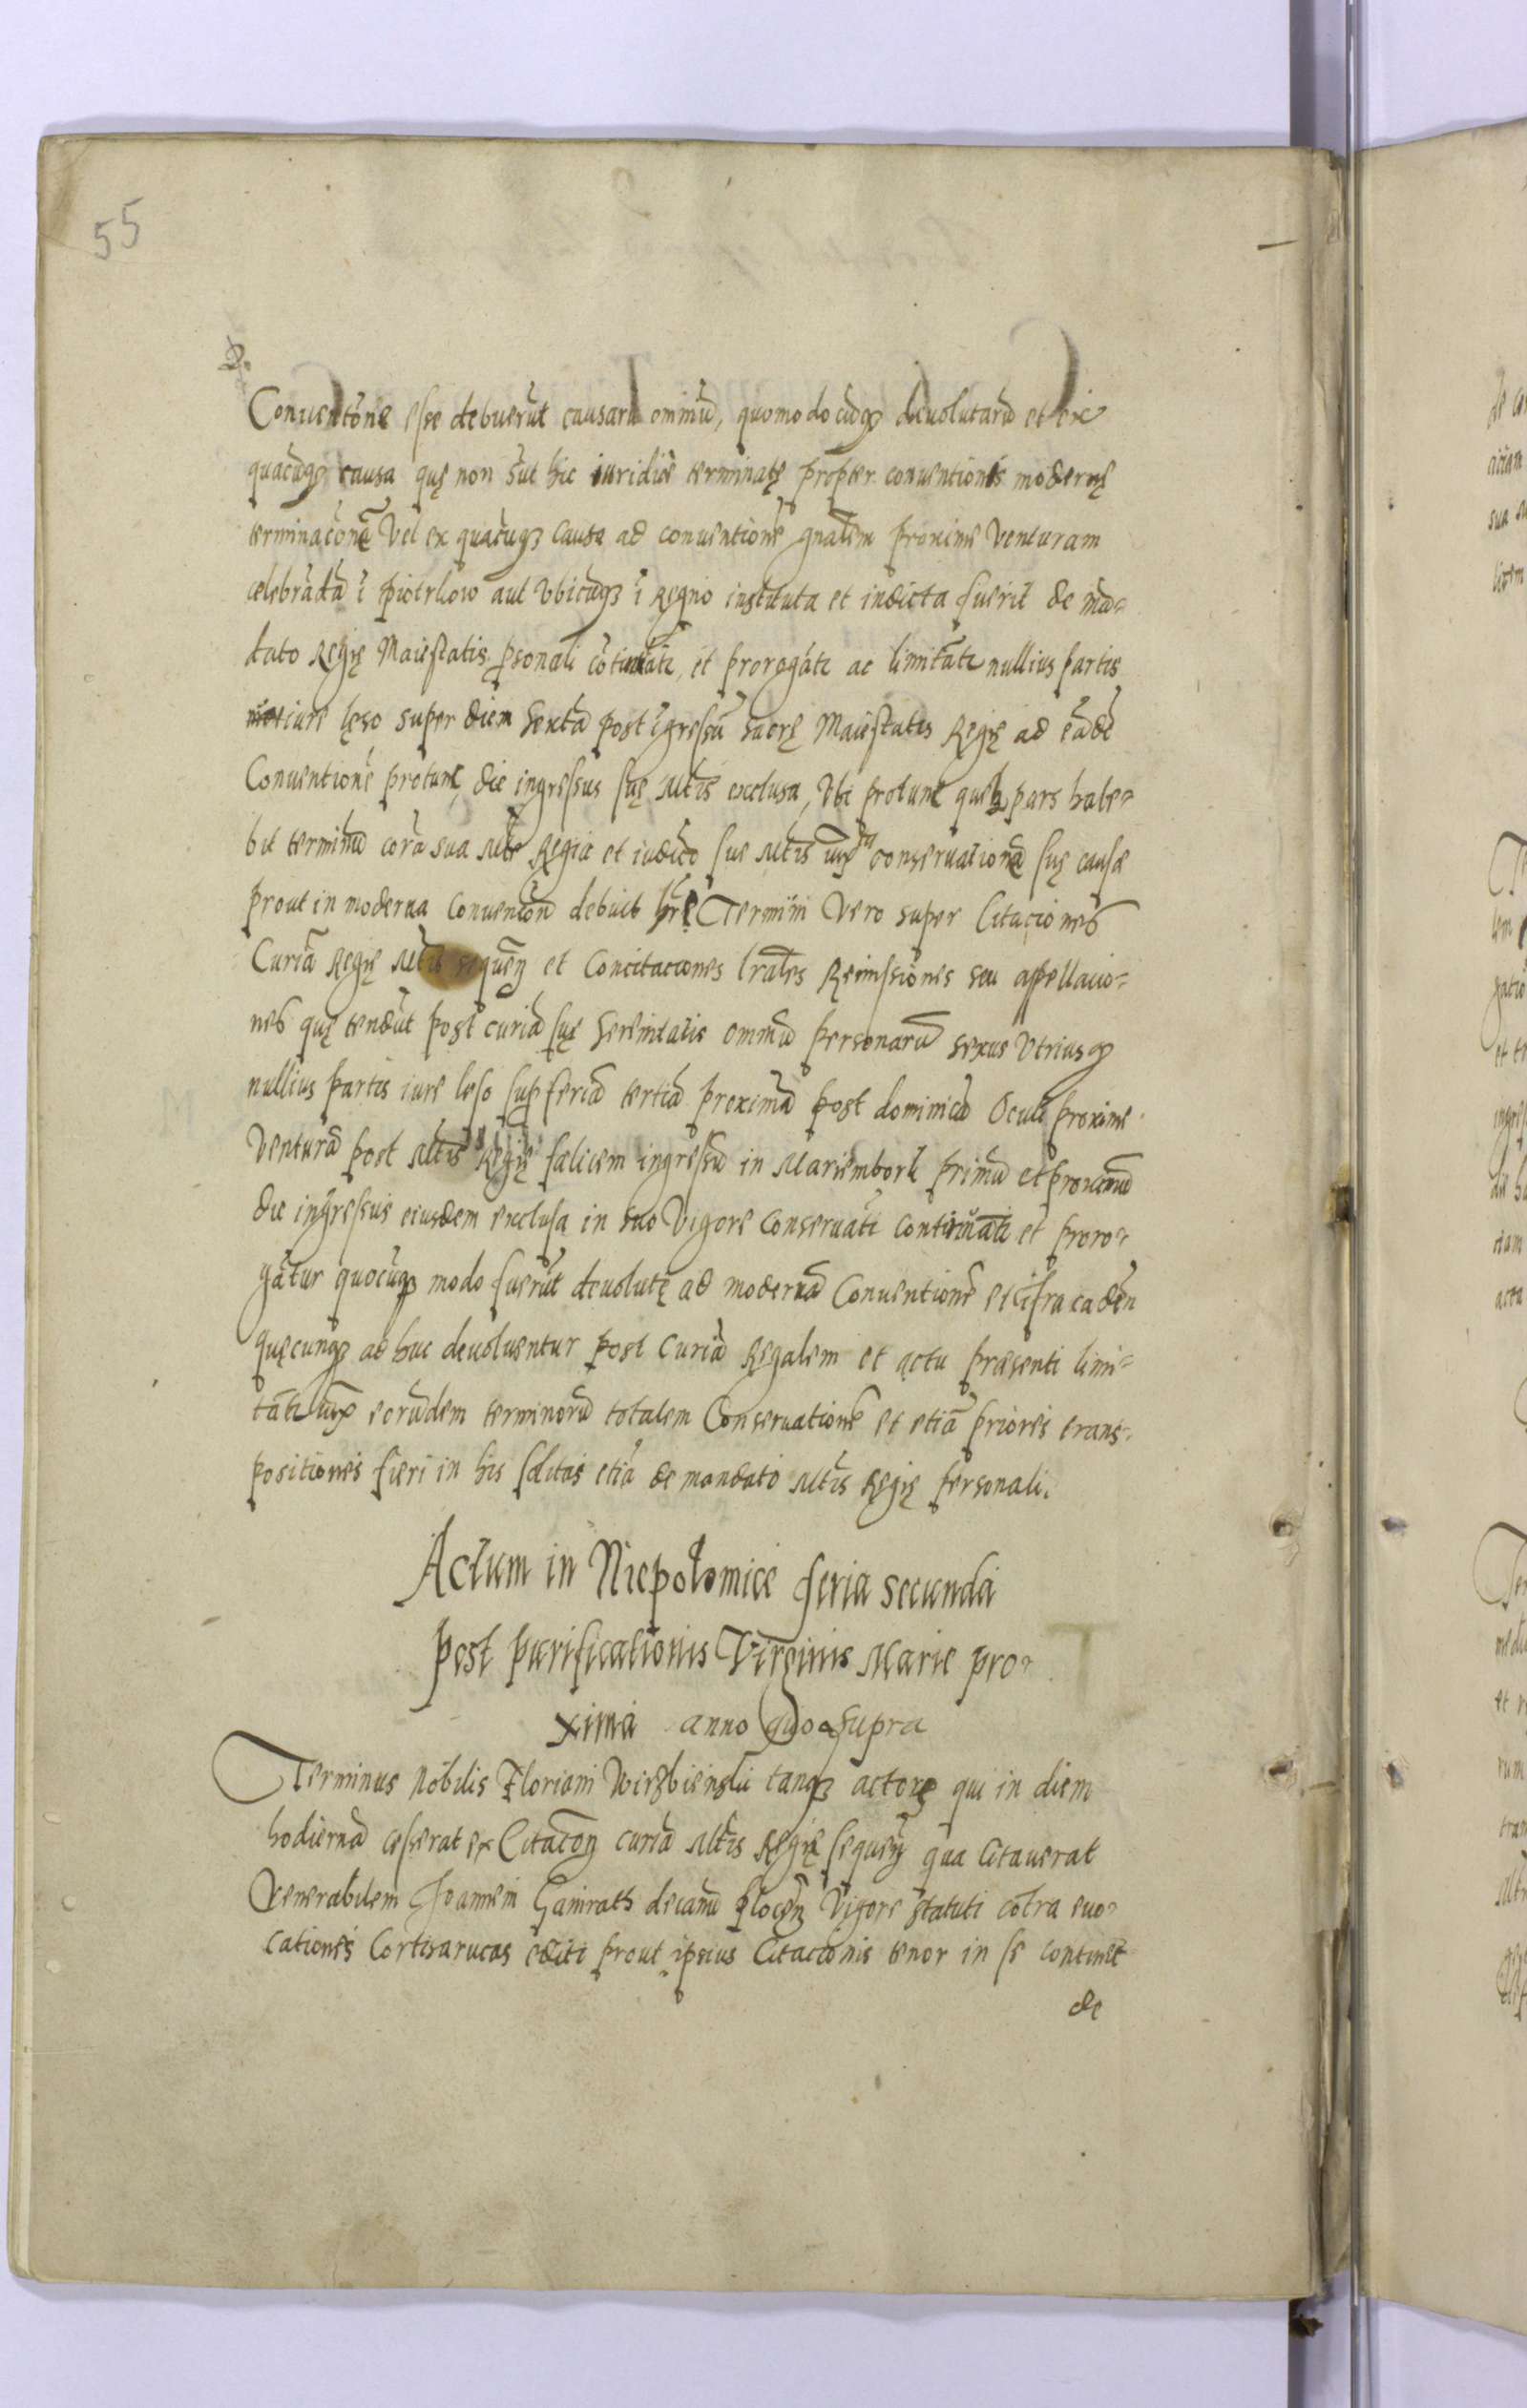 55
Conuentōne esse debuerūt causarū omniū, quomodocūqȝ deuolutarū et ex
quacūqȝ causa quę non sūt hic iuridice terminatę propter conuentionis modernę
terminacōnē Vel ex quacūqȝ causa ad conuentionē gnālem proxime Venturam
celebrādā ī Piotrkow aut Vbicūqȝ ī Regno instituta et indicta fuerit de mā-
dato Regię Maiestatis psonali cōtinuāti, et prorogāti ac limitāti nullius partis
iure lęso super diem sextā post īgressū sacrę Maiestatis Regię ad eādē
Conuentionē protunc, die ingressus suę Mtīs exclusa, Vbi protunc quelꝫ pars habe-
bit terminū corā sua Mte Regia et iudicō sue Mtīs conseruationē suę causæ
prout in moderna Conuentōn debuit hrē Termini Vero super Citaciones
Curiā Regię Mtīs sequēn et Concitaciones lrāles Remissiones seu appellacio-
nes quę tendūt post curiā suę Serenitatis omniū personarū sexus Vtriusqȝ
nullius partis iure leso sup feriā tertiā proximā post dominicā Oculi proxime
Venturā post Mtīs Regię fælicem ingressū in Mariembork primū et proximū
die ingressus eiusdem exclusa in suo Vigore Conseruāti Continuāti et proro-
gātur quocūqȝ modo fuerūt deuolutę ad modernā Conuentionē et īfra eadēn
quęcunqȝ ad huc deuoluentur post Curiā Regalem et actu præsenti limi-
tāti eorūdem terminorū totalem Conseruationē et etiā priores trans-
positiones fieri in his solitas etiā de mandato Mtīs Regię personali.
Actum in Niepołomice feria secunda
post purificationis Virginis Marie pro-
xima anno quo supra
Terminus Nobilis Floriani Wirzbienski tanqȝ actoris qui in diem
hodiernā cesserat ex Citacōn curiā Mtīs Regię sequēn qua Citauerat
Venerabilem Joannem Gamrath decanū Plocēn Vigore statuti cōtra euo-
cationes Cortisanicas editi prout ipsius Citacionis tenor in se continet
de